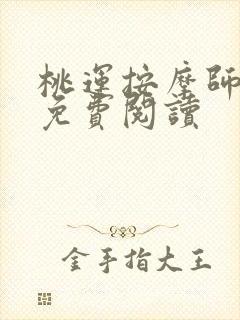 桃運按摩師
免費閱讀
金手指大王